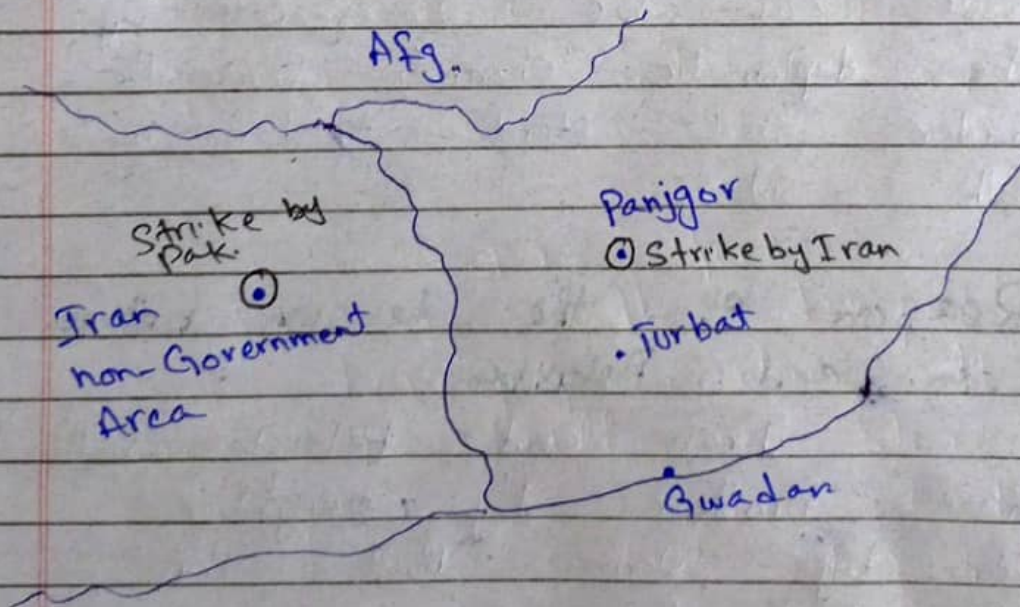 Afg.
Strike by
Pak.
Iran
non-Government
Area
Panjgor
Strike by Iran
Turbat
Gwadar